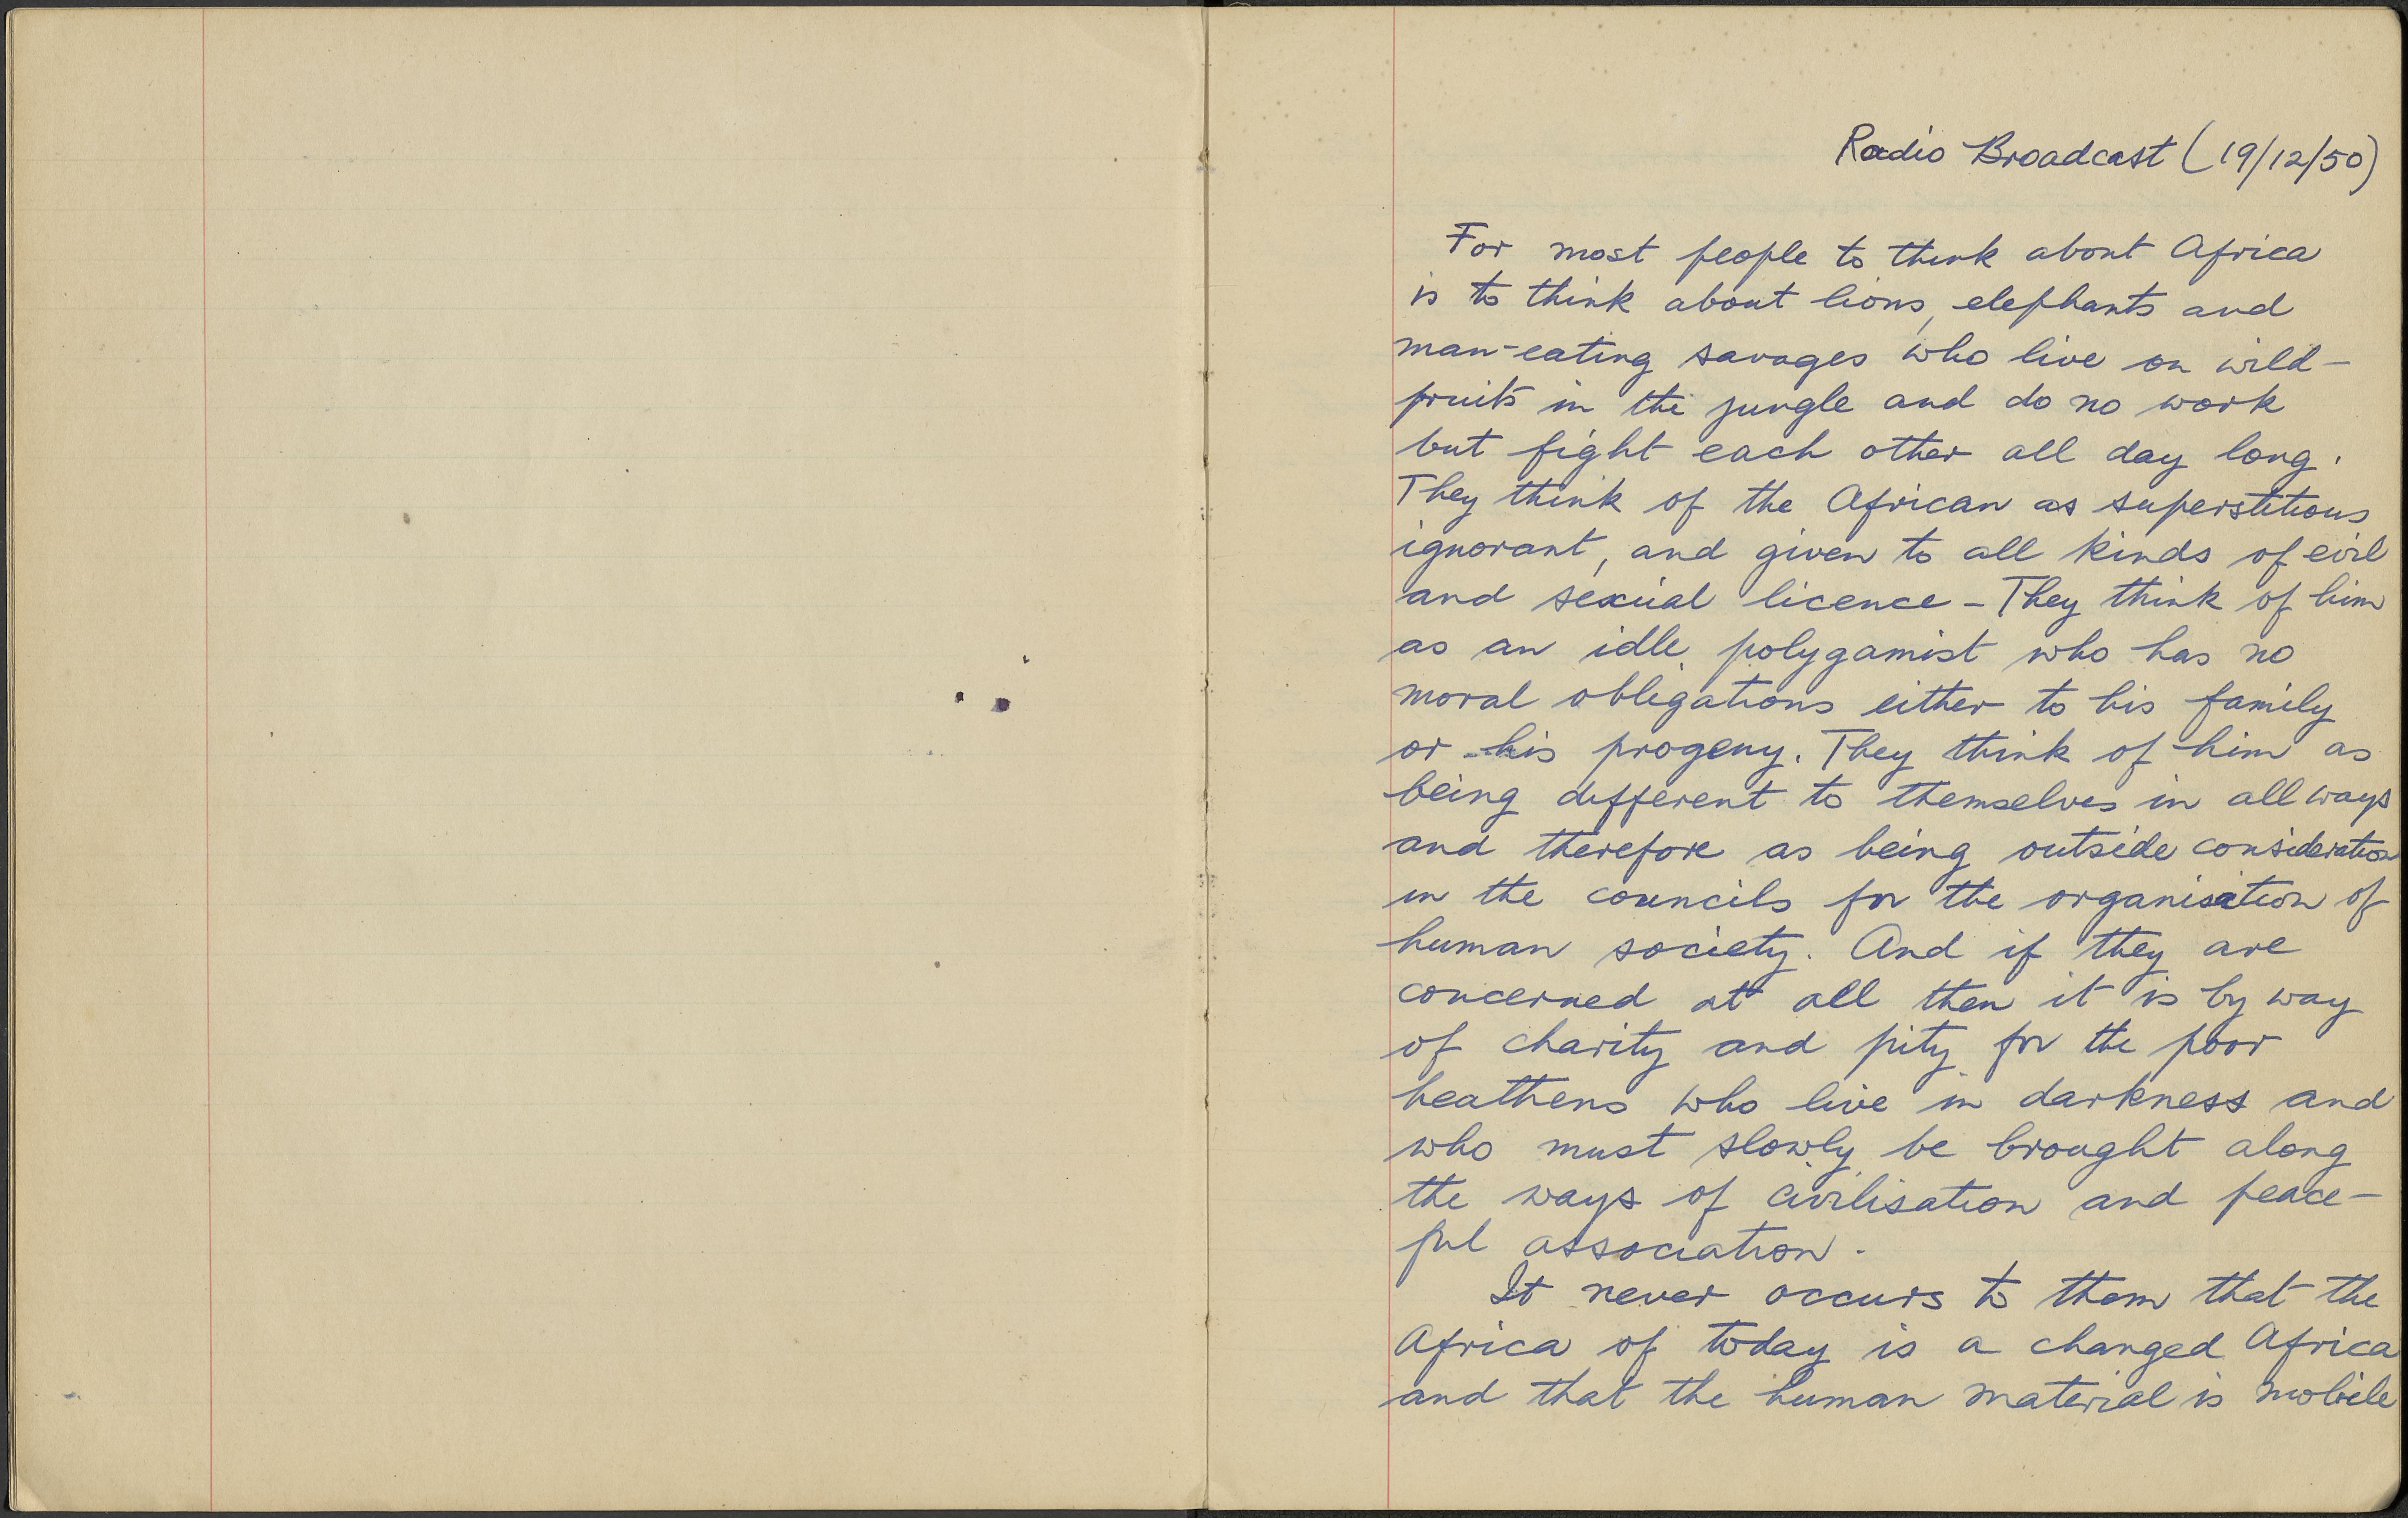 Radio Broadcast (19/12/50)
For most people to think about Africa
is to think about lions, elephants and
man-eating savages who live on wild-
fruits in the jungle and do no work
but fight each other all day long.
They think of the African as superstitious
ignorant, and given to all kinds of evil
and sexual licence - They think of him
as an idle polygamist who has no
moral obligations either to his family
or his progeny. They think of him as
being different to themselves in all ways
and therefore as being outside consideration
in the councils for the organisation of
human society. And if they are
concerned at all then it is by way
of charity and pity for the poor
heathens who live in darkness and
who must slowly be brought along
the ways of civilisation and peace-
ful association.
It never occurs to them that the
Africa of today is a changed Africa
and that the human material is mobile